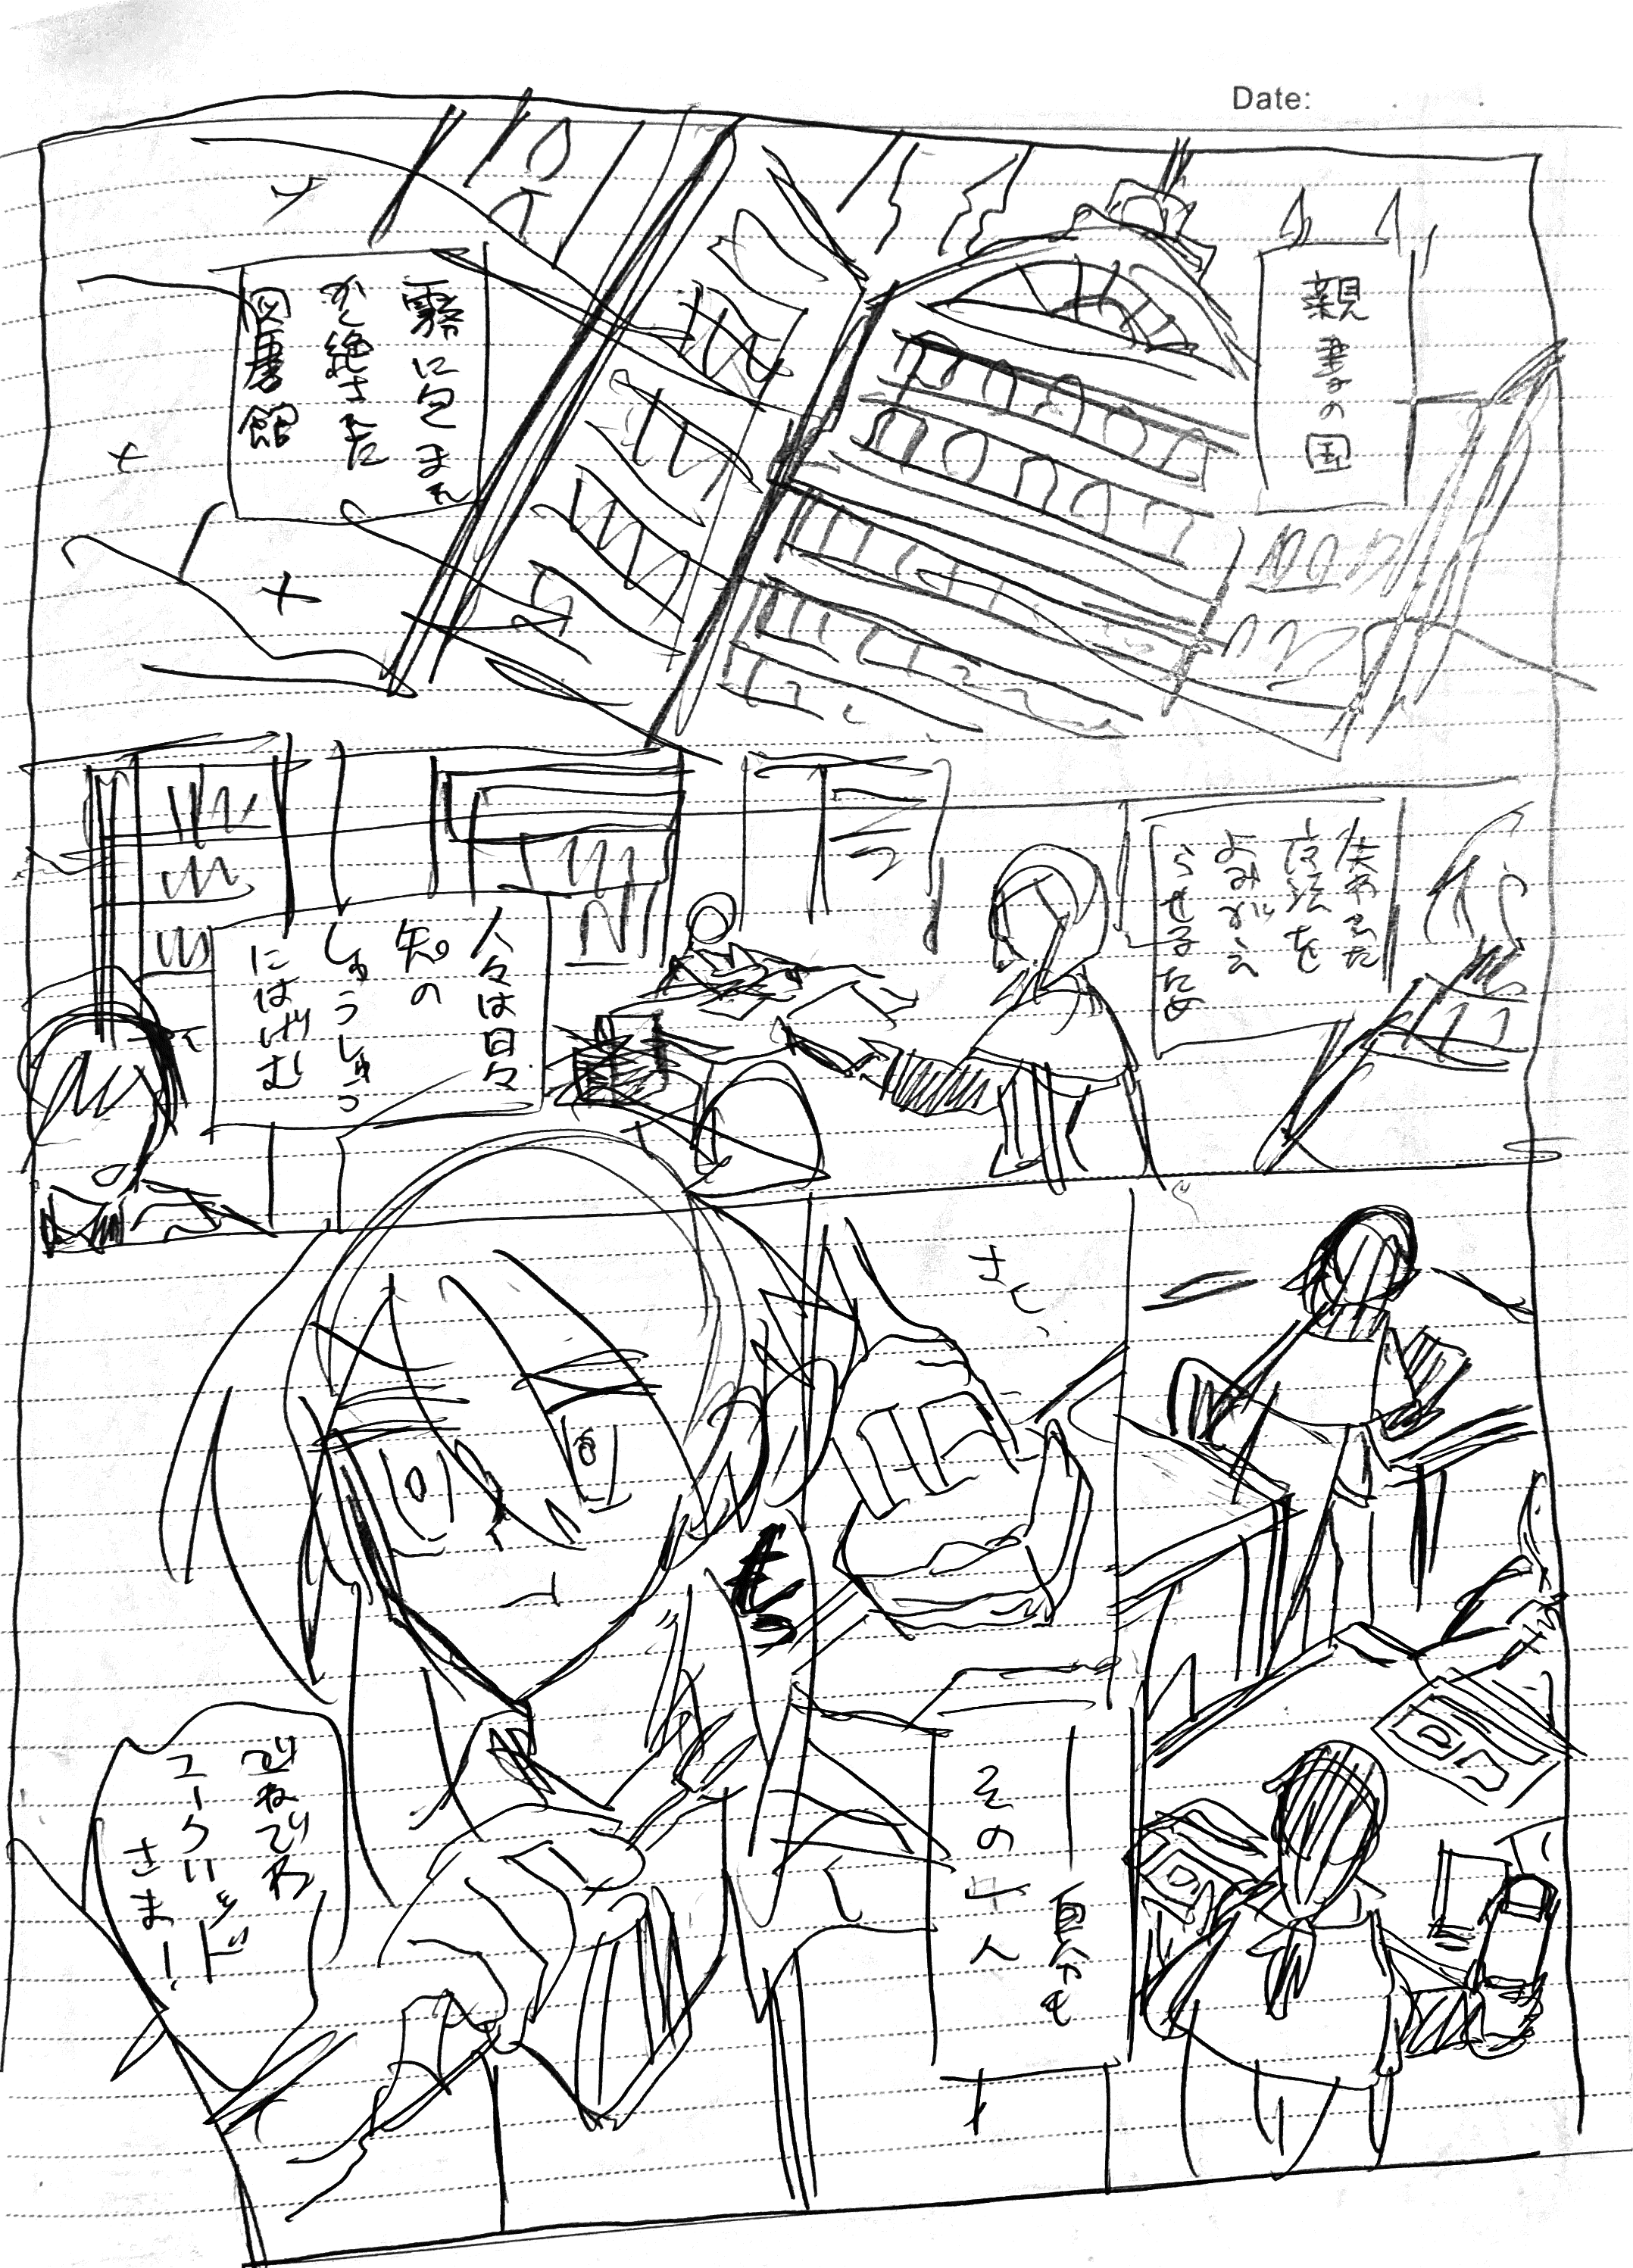 Date:
親書の国
霧に包まれ
かく絶された
図書館
失われた
魔法を
よみがえ
らせるため
人々は日々
知の
しゅうしゅう
にはげむ
さっ
自分も
その十人
でねでね
ユークリッド
さまー!